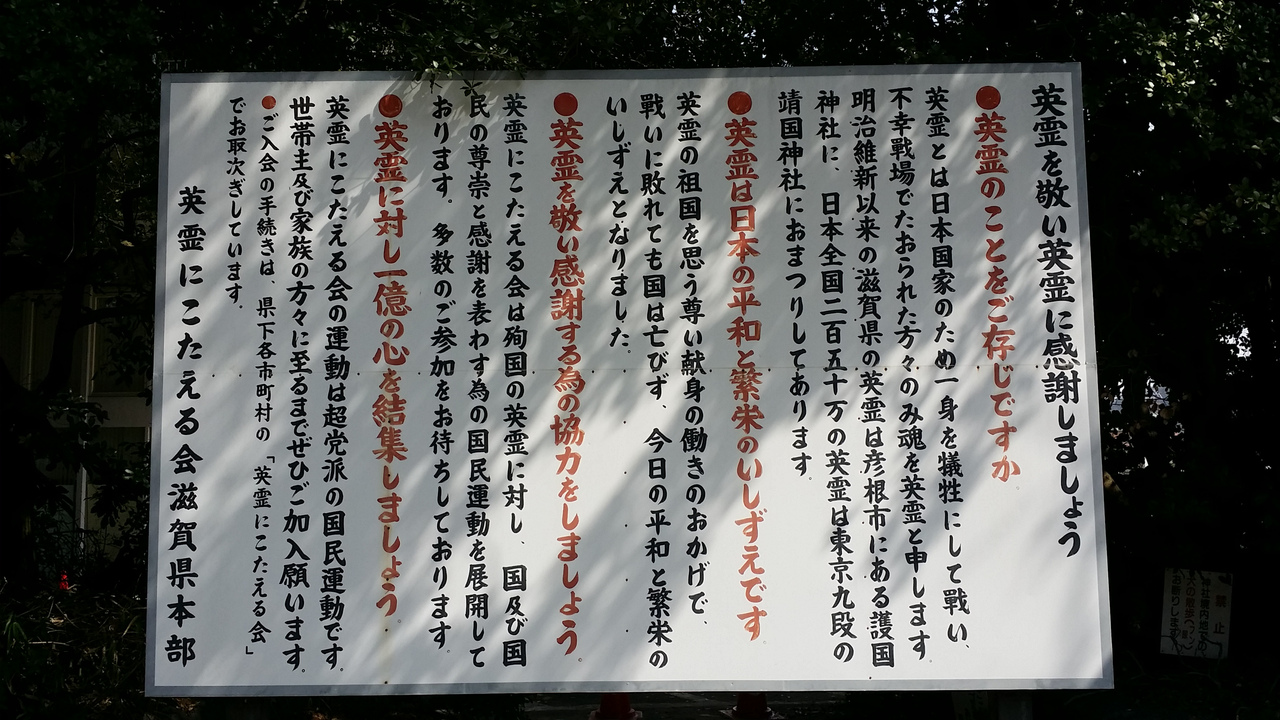 英霊を敬い英霊に感謝しましょう
●英霊のことをご存じですか
英霊とは日本国家のため一身を犠牲にして戦い、
不幸戦場でたおられた方々のみ魂を英霊と申します。
明治維新以来の滋賀県の英霊は彦根市にある護国
神社に、日本全国二百五十万の英霊は東京九段の
靖国神社におまつりしてあります。
●英霊は日本の平和と繁栄のいしずえです
英霊の祖国を思う尊い献身の働きのおかげで、
戦いに敗れても国は亡びず、今日の平和と繁栄の
いしずえとなりました。
●英霊を敬い感謝する為の協力をしましょう
英霊にこたえる会は殉国の英霊に対し、国及び国
民の尊崇と感謝を表わす為の国民運動を展開して
おります。多数のご参加をお待ちしております。
●英霊に対し一億の心を結集しましょう
英霊にこたえる会の運動は超党派の国民運動です。
世帯主及び家族の方々に至るまでぜひご加入願います。
●ご入会の手続きは、県下各市町村の「英霊にこたえる会」
でお取次ぎしています。
英霊にこたえる会滋賀県本部
禁止